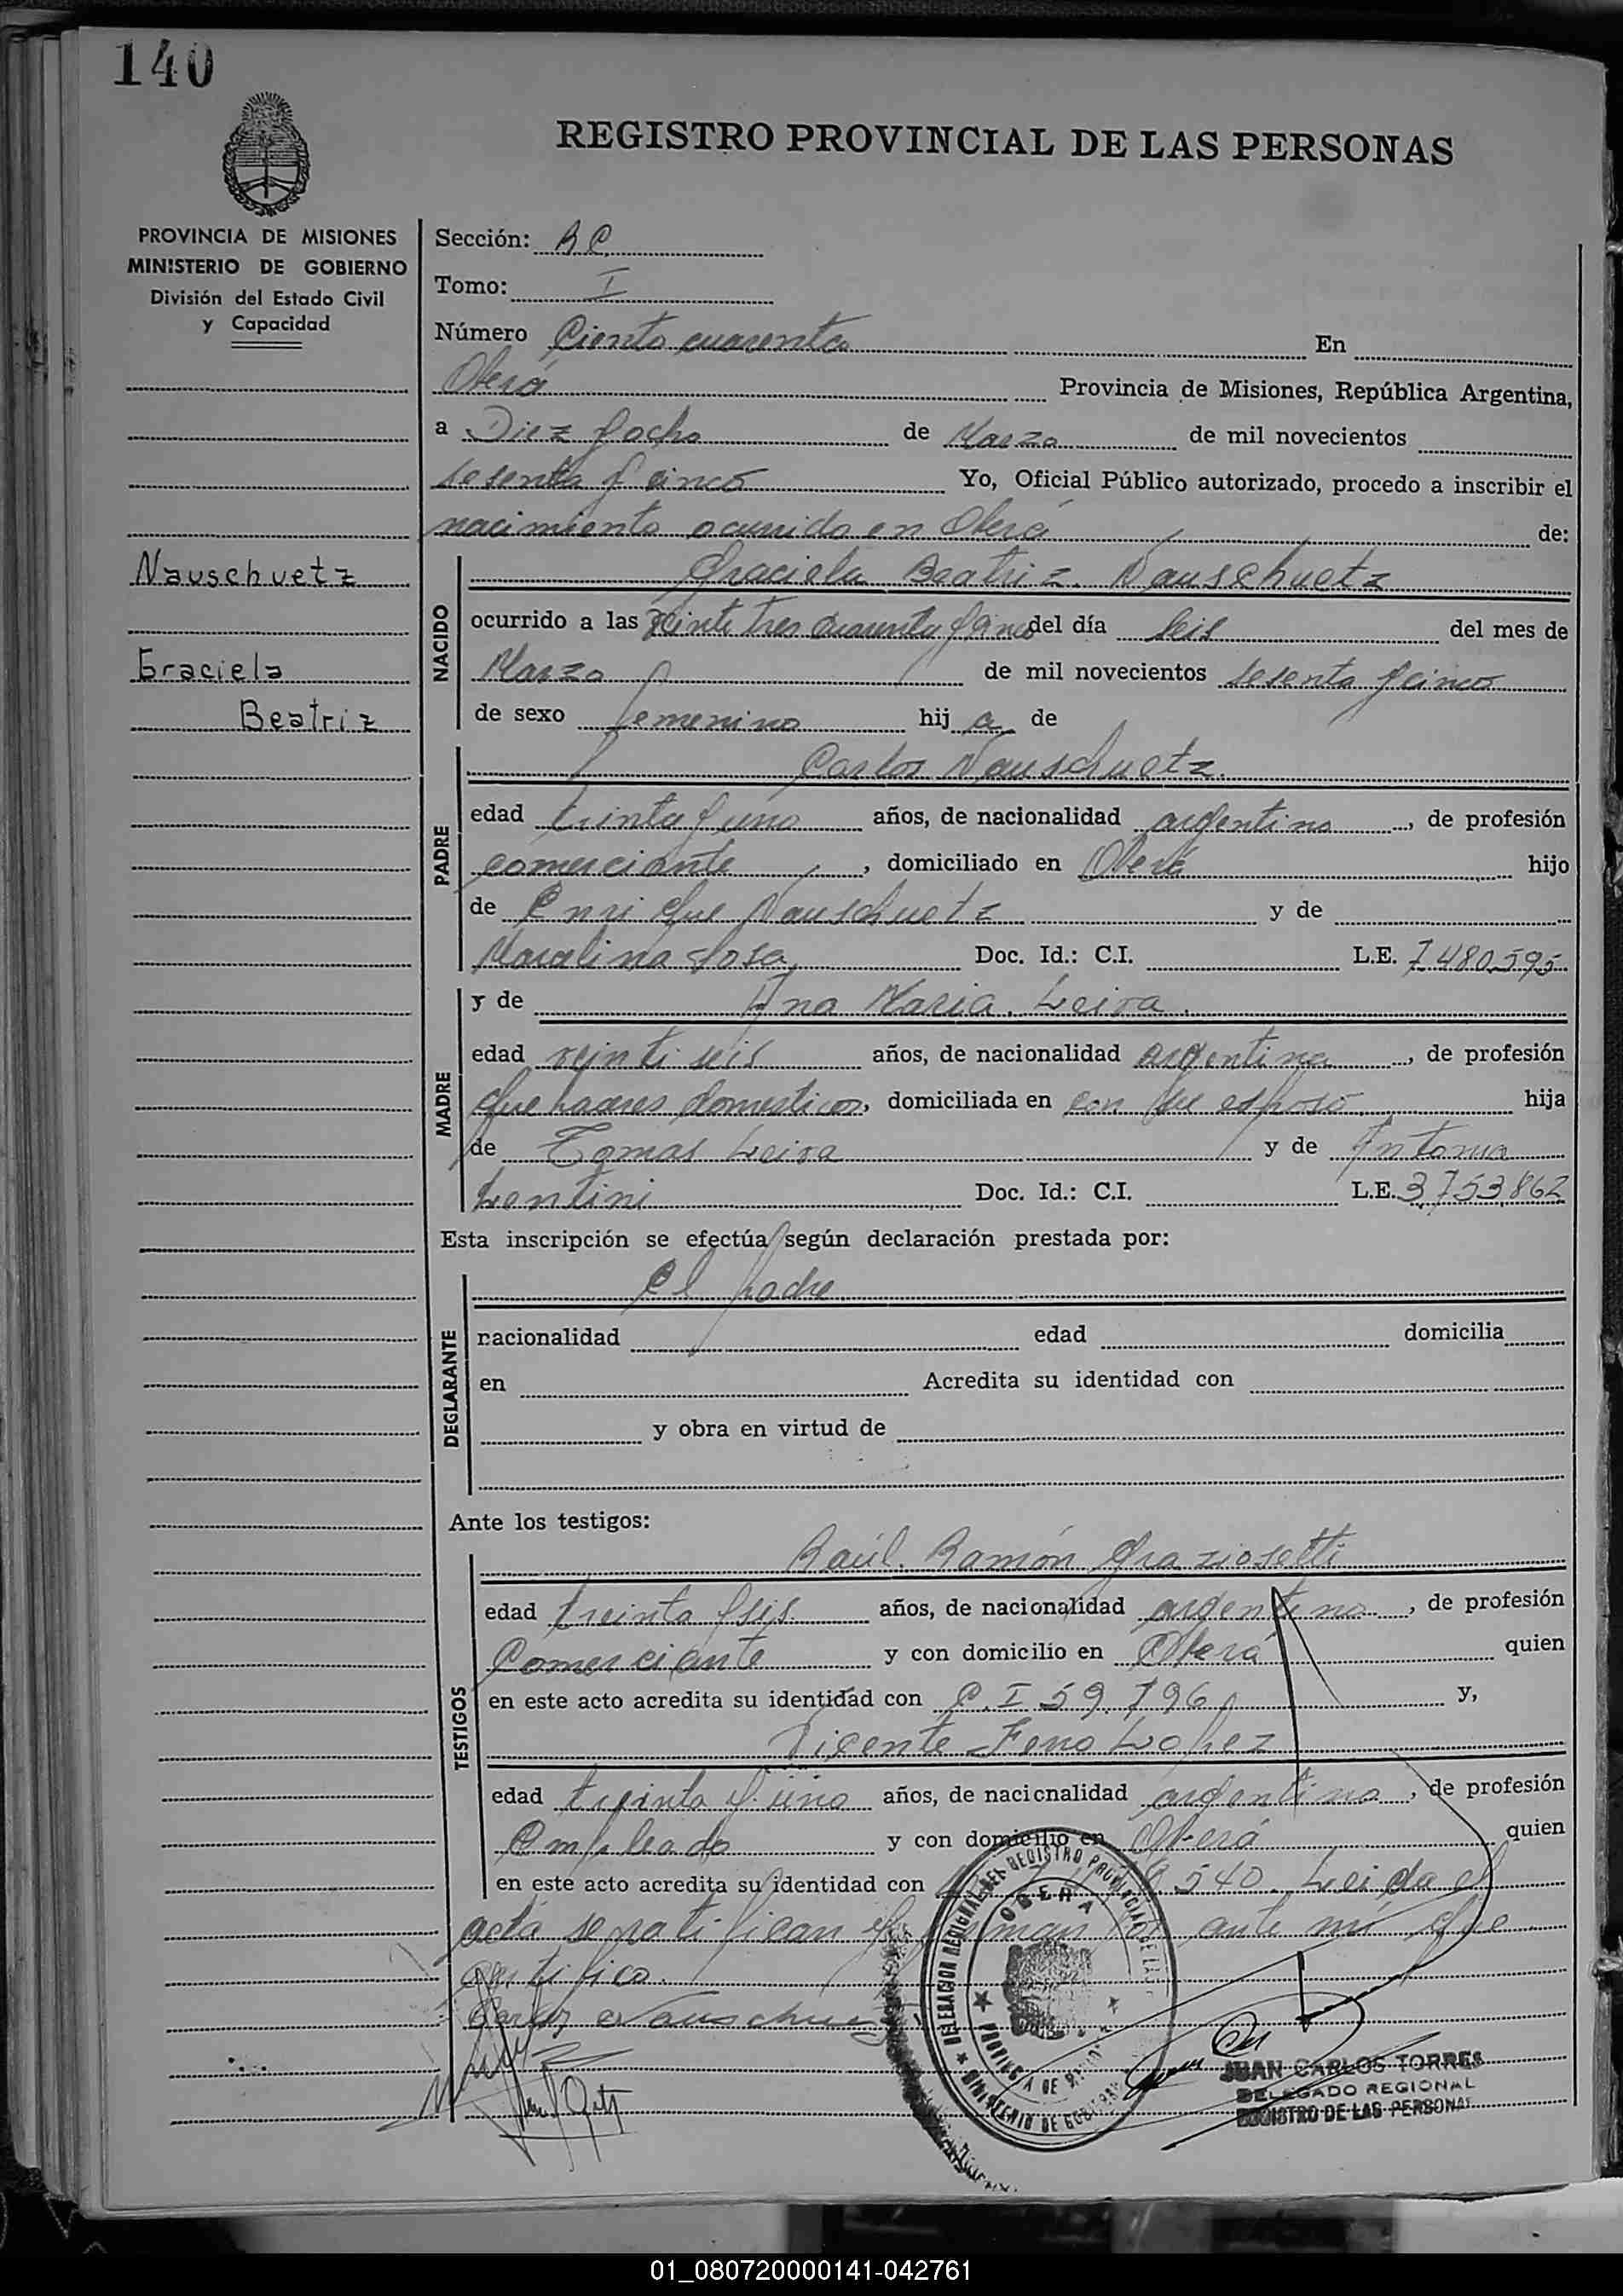 140
REGISTRO PROVINCIAL DE LAS PERSONAS
PROVINCIA DE MISIONES
MINISTERIO DE GOBIERNO
División del Estado Civil
y Capacidad
Nauschuetz
Graciela
Beatriz
Sección:
Tomo: I
Número Ciento cuarenta En
Oberá Provincia de Misiones, República Argentina,
a Diez y ocho de Marzo de mil novecientos
sesenta y cinco Yo, Oficial Público autorizado, procedo a inscribir el
nacimiento ocurrido en Oberá de:
NACIDO
Graciela Beatriz Nauschuetz
ocurrido a las veinte tres cuarenta y cinco del día seis del mes de
Marzo de mil novecientos sesenta y cinco
de sexo femenino hija de
PADRE
Carlos Nauschuetz.
edad treinta y uno años, de nacionalidad argentino, de profesión
comerciante, domiciliado en Oberá hijo
de Enrique Nauschuetz y de
Sosa Doc. Id.: C.I. L.E. 7480595
MADRE
y de Ana Maria Leiva.
edad veinti seis años, de nacionalidad argentina, de profesión
quehaceres domesticos, domiciliada en con su esposo hija
de Tomas Leiva y de Antonia
Lentini Doc. Id.: C.I. L.E. 3.753.862
Esta inscripción se efectúa según declaración prestada por:
DEGLARANTE
El padre
nacionalidad edad domicilia
en Acredita su identidad con
y obra en virtud de
Ante los testigos:
TESTIGOS
Raúl Ramón
edad treinta y seis años, de nacionalidad argentino, de profesión
Comerciante y con domicilio en Oberá quien
en este acto acredita su identidad con C.I 59.796 y,
Vicente Lopez
edad treinta y uno años, de nacionalidad argentino, de profesión
Empleado y con domicilio en Oberá quien
en este acto acredita su identidad con 540. Leida el
acta se ratifican y firman por ante mí que
certifico.
Carlos Nauschuetz
DELEGACION REGIONAL DEL REGISTRO PROVINCIAL DE LAS
OBERA
PROVINCIA DE MISIONES
MINISTERIO DE GOBIERNO
JUAN CARLOS TORRES
DELEGADO REGIONAL
REGISTRO DE LAS PERSONAS
01_080720000141-042761